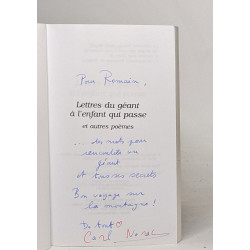 Pour Romain,
Lettres du géant
à l'enfant qui passe
et autres poèmes
... des mots pour
rencontrer un
géant
et tous ses secrets
Bon voyage sur
la montagne !
Carl Norac